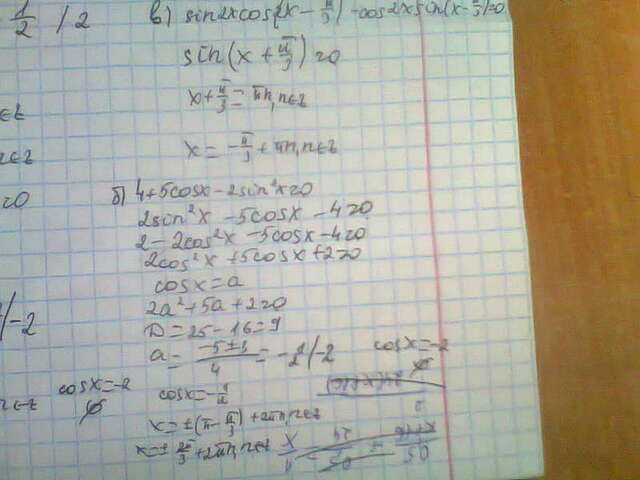 1/2 / 2
в) sin2xcos(2x - π/3) - cos2xsin(x - π/3)=0
sin(x + π/3)=0
x + π/3 = πn, n∈z
∈z
x = -π/3 + πn, n∈z
n∈z
б) 4+5cosx-2sin²x=0
=0
2sin²x - 5cosx - 4=0
2 - 2cos²x - 5cosx - 4=0
2cos²x + 5cosx + 2=0
cosx=a
2a²+5a+2=0
/-2
D=25-16=9
a = (-5±3)/4 = -1/2 / -2
cosx=-2
∅
cosx=-2
∅
cosx=-1/2
n∈z
x=±(π-π/3)+2πn, n∈z
x=± 2π/3 +2πn, n∈z